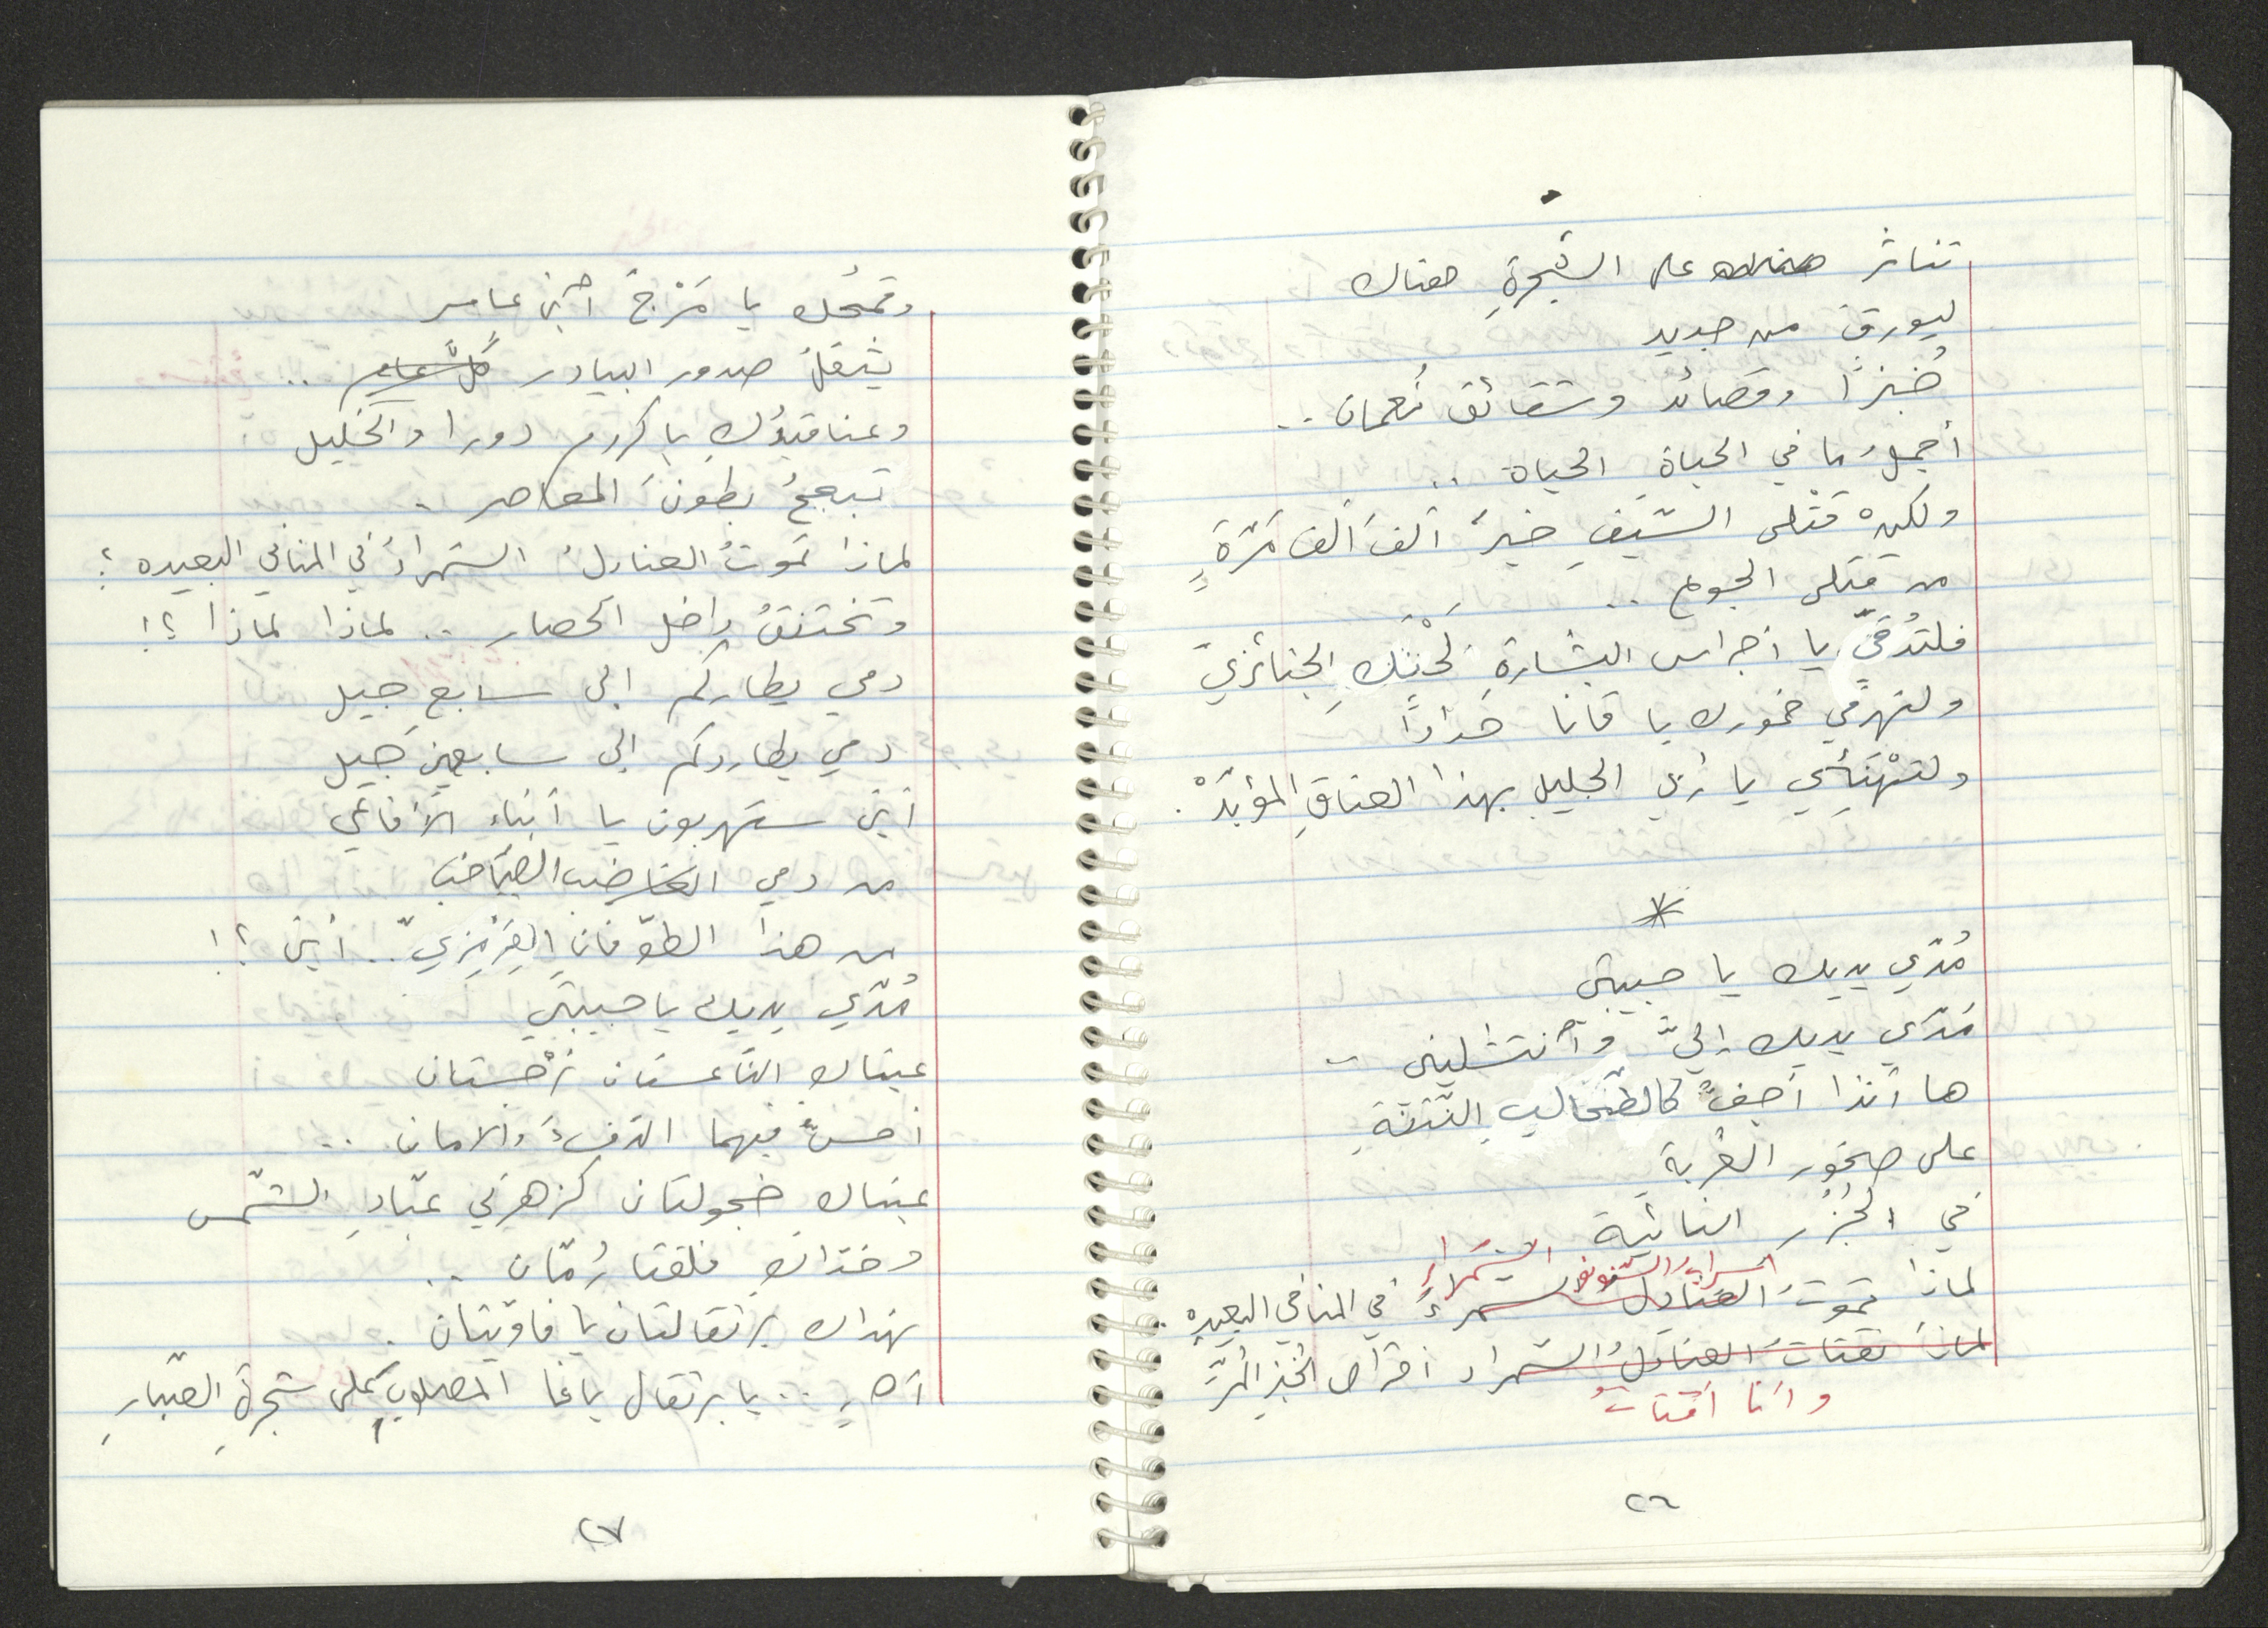 تناثر هناك على الشجرةِ هناك
ليورقَ من جديد
خُبزًا وقصائدَ وشقائق نُعمان ..
أجملُ ما في الحياة الحياة ..
ولكنْ قتلى السّيفِ خيرٌ ألفَ ألف مَرّةٍ
من قتلى الجوع ..
فلتدُقّي يا أجراس البشارةِ لحْنَكِ الجنائزيّ
ولتهرقي خمورك يا قانا
ولتهْنَأي يا رُبى الجليل بهذا العناقِ المؤبّدْ .
*
مُدّي يديك يا حبيبتي
مُدّي يديك إليَّ وأنتشليني ..
ها أنذا أجفُّ كالطّحالبِ النّتنةِ
على صخور الغربةِ
في الجُزر النائية
أسرابُ السّنونو السّمراءُ
لماذا تموتُ العنادلُ السمراءُ في المنافي البعيده .
لماذا تقتاتُ العنادلُ السّمراء أقراص الخبزِ المُرّ
وأنا أقتاتُ
٢٦
وقمحُك يا مَرْجَ أبن عامر
يثقلُ صدور البيادر كُلَّ عام ..
وعناقيدُكِ يا كروم دورا والخليل
تبعجُ بطونَ المعاصر .
لماذا تموتُ العنادلُ السّمراءُ في المنافي البعيده ؟
وتختنقُ داخل الحصار .. لماذا لماذا ؟!
دمي يطاركم إلى سابع جيل
دمي يطاردكم إلى سابعين جيل
أينَ ستهربون يا أبناء الأفاعي
من دمي الغاضب الصّاخب
من هذا الطوّفانِ القِرْمِزيّ .. أينَ ؟!
مُدّي يديك يا حبيبتي
عيناك النّاعستان نرْجستان
أحسُّ فيهما الدّفءَ والامان ..
عيناك خجولتان كزهرتي عبّادِ الشّمس
وخدّاكِ فلقتا رُمّان ..
نهداك برتقالتان يافاويّتان .
آهِ .. يا برتقال يافا المصلوب على شجرةِ الصّبارِ
٢٧